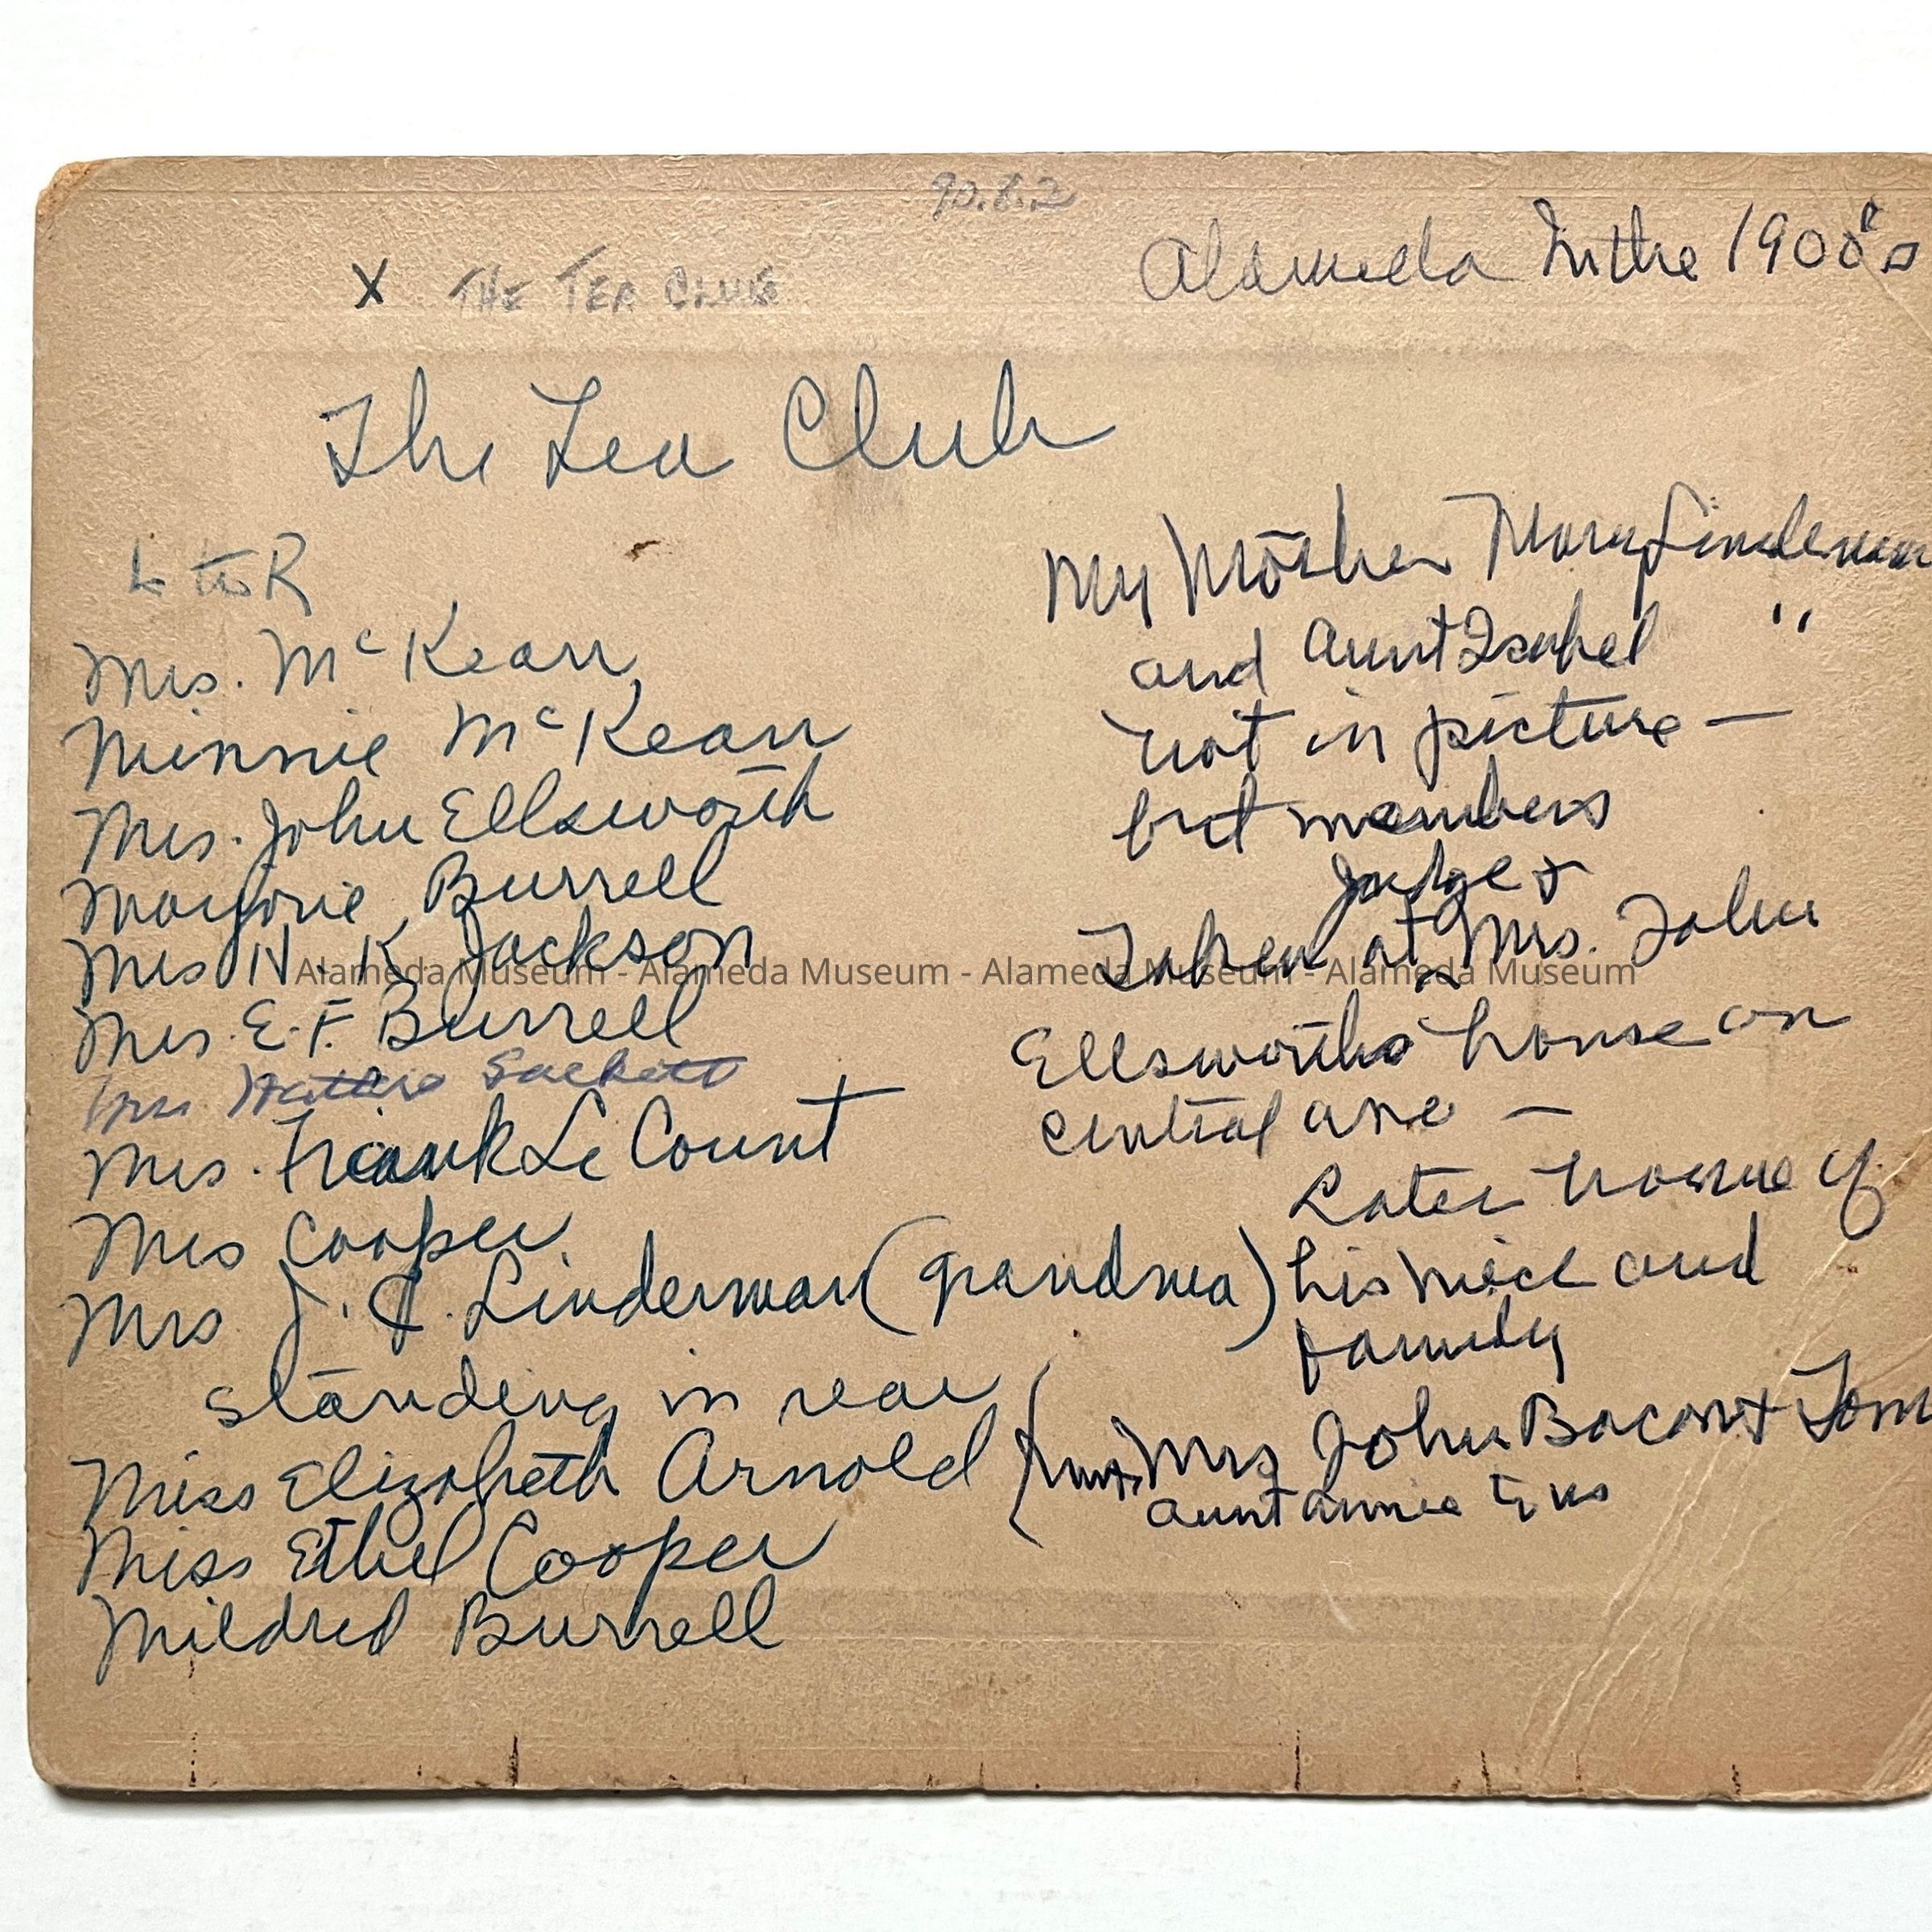 90.8.2
Alameda In the 1900's
X THE TEA CLUB
The Tea Club
L to R
Mrs. McKean
Minnie McKean
Mrs. John Ellsworth
Marjorie Burrell
Mrs H. K. Jackson
Mrs. E. F. Burrell
Mrs Hattie Sackett
Mrs. Frank Le Count
Mrs Cooper
Mrs J. C. Linderman (grandma)
standing in rear
Miss Elizabeth Arnold
Miss Ethel Cooper
Mildred Burrell
My Mother Mary Linderman
and Aunt Isabel "
not in picture —
but members
Judge +
Taken at ^ Mrs. John
Ellsworths house on
Central ave —
Later home of
his niece and
family
Mrs John Bacon + Tom
Aunt Annie
Alameda Museum - Alameda Museum - Alameda Museum - Alameda Museum